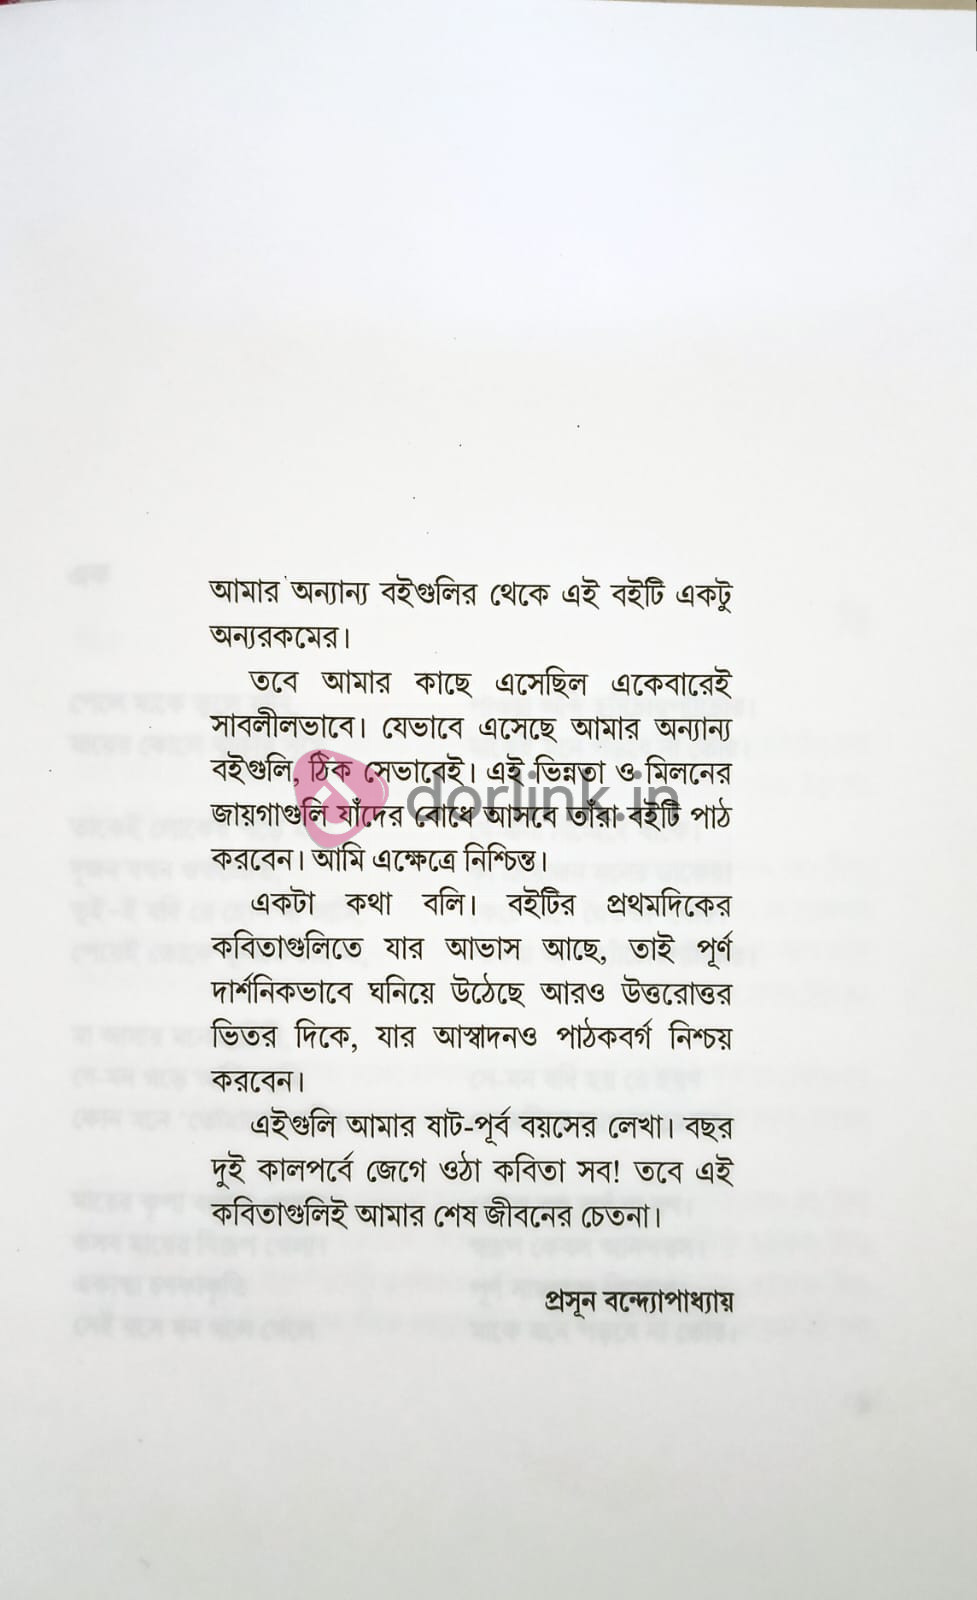 আমার অন্যান্য বইগুলির থেকে এই বইটি একটু
অন্যরকমের।
তবে আমার কাছে এসেছিল একেবারেই
সাবলীলভাবে। যেভাবে এসেছে আমার অন্যান্য
বইগুলি, ঠিক সেভাবেই। এই ভিন্নতা ও মিলনের
dorlink.in
জায়গাগুলি যাঁদের বোধে আসবে তাঁরা বইটি পাঠ
করবেন। আমি এক্ষেত্রে নিশ্চিন্ত।
একটা কথা বলি। বইটির প্রথমদিকের
কবিতাগুলিতে যার আভাস আছে, তাই পূর্ণ
দার্শনিকভাবে ঘনিয়ে উঠেছে আরও উত্তরোত্তর
ভিতর দিকে, যার আস্বাদনও পাঠকবর্গ নিশ্চয়
করবেন।
এইগুলি আমার ষাট-পূর্ব বয়সের লেখা। বছর
দুই কালপর্বে জেগে ওঠা কবিতা সব! তবে এই
কবিতাগুলিই আমার শেষ জীবনের চেতনা।
প্রসূন বন্দ্যোপাধ্যায়